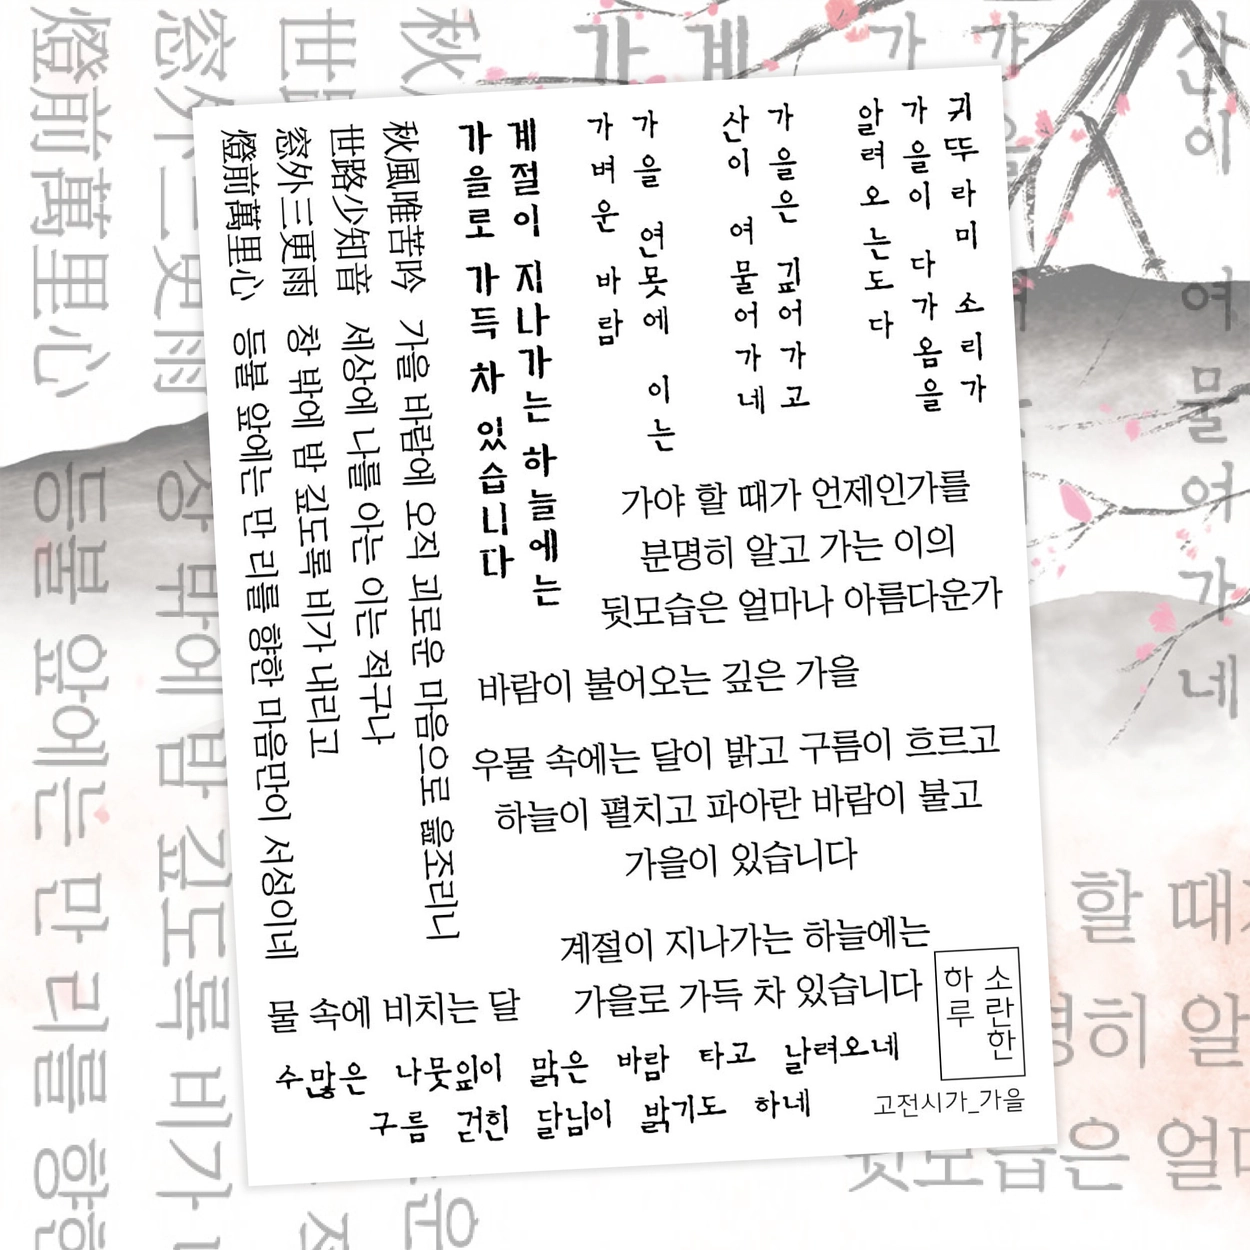 귀뚜라미 소리가
가을이 다가옴을
알려오는도다
가을은 깊어가고
산이 여물어가네
가을 연못에 이는
가벼운 바람
계절이 지나가는 하늘에는
가을로 가득 차 있습니다
秋風唯苦吟 가을 바람에 오직 괴로운 마음으로 읊조리니
世路少知音 세상에 나를 아는 이는 적구나
窓外三更雨 창 밖에 밤 깊도록 비가 내리고
燈前萬里心 등불 앞에는 만 리를 향한 마음만이 서성이네
가야 할 때가 언제인가를
분명히 알고 가는 이의
뒷모습은 얼마나 아름다운가
바람이 불어오는 깊은 가을
우물 속에는 달이 밝고 구름이 흐르고
하늘이 펼치고 파아란 바람이 불고
가을이 있습니다
계절이 지나가는 하늘에는
가을로 가득 차 있습니다
물 속에 비치는 달
수많은 나뭇잎이 맑은 바람 타고 날려오네
구름 걷힌 달님이 밝기도 하네
소란한
하루
고전시가_가을
산이 여물어가네
가
가
가 계
秋
世路
窓外三更雨 창 밖에 밤 깊도록 비가 내
燈前萬里心 등불 앞에는 만 리를 향한
할 때가
명히 알
뒷모습은 얼마